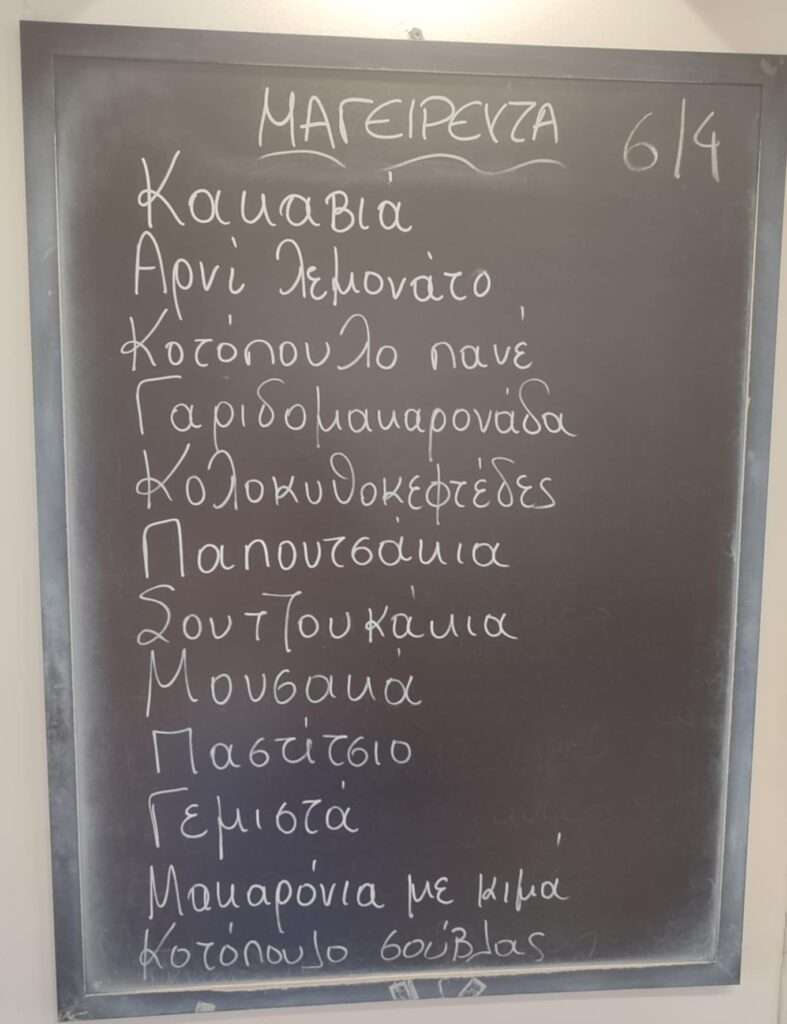 ΜΑΓΕΙΡΕΥΤΑ 6/4
Κακαβιά
Αρνί λεμονάτο
Κοτόπουλο πανέ
Γαριδομακαρονάδα
Κολοκυθοκεφτέδες
Παπουτσάκια
Σουτζουκάκια
Μουσακά
Παστίτσιο
Γεμιστά
Μακαρόνια με κιμά
Κοτόπουλο σούβλας